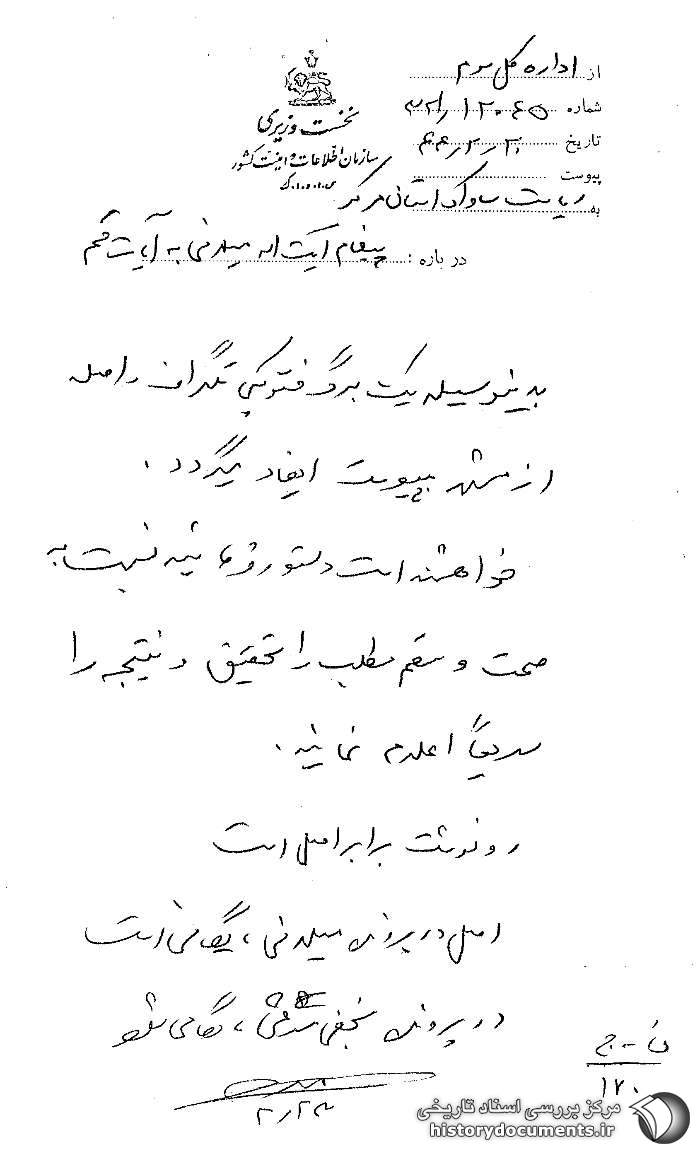 از اداره کل سوم
شماره ۳۲۱/۱۲۰۶۵
تاریخ ۴۴/۲/۲۰
پیوست
به ریاست ساواک استان مرکز
درباره : پیغام آیت اله میلانی به آیات قم
نخست وزیری
سازمان اطلاعات و امنیت کشور
س.ا.و.ا.ک
بدینوسیله یک برگ فتوکپی تلگراف واصله
از مشهد بپیوست ایفاد میگردد .
خواهشمند است دستور فرمائید نسبت به
صحت و سقم مطلب را تحقیق و نتیجه را
سریعاً اعلام نمائید .
رونوشت برابر اصل است
اصل در پرونده میلانی ، بایگانی است
در پرونده نجفی مرعشی ، بایگانی شود
۲/۲۳
ن - ج
۱۲۰
مرکز بررسی اسناد تاریخی
historydocuments.ir